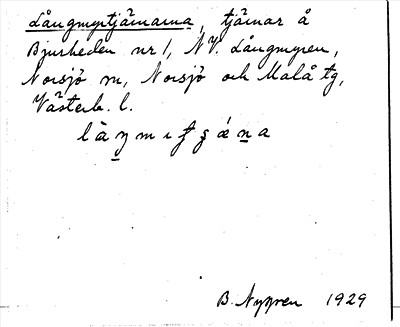 Långmyrtjärnarna, tjärnar å
Bjurheden nr 1, NV. Långmyren,
Norsjö sn, Norsjö och Malå tg,
Västerb. l.
B. Nygren 1929